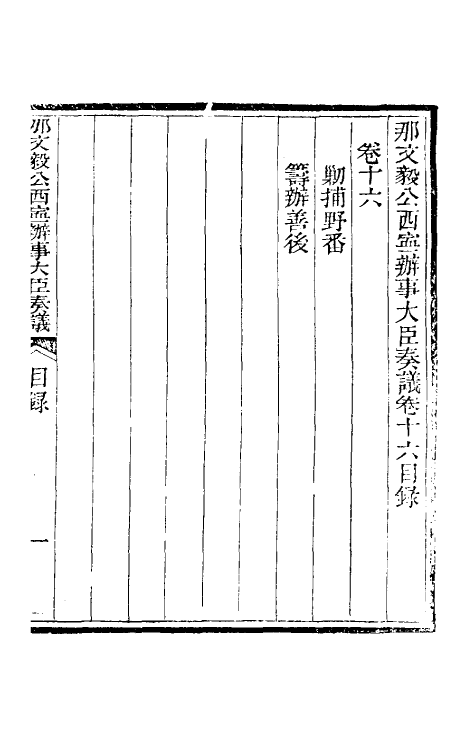 那文毅公西寧辦事大臣奏議卷十六目錄
卷十六
勦捕野番
籌辦善後
那文毅公西寧辦事大臣奏議
目錄
一